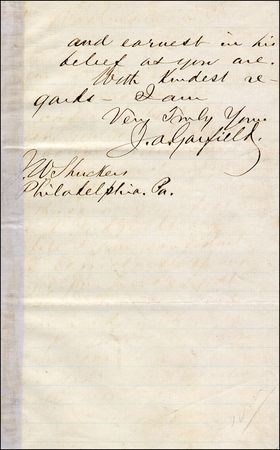 and earnest in his
belief as you are.
With kindest re-
gards — I am
Very Truly Yours
J. A. Garfield.
J.W. Shuckers
Philadelphia. Pa.